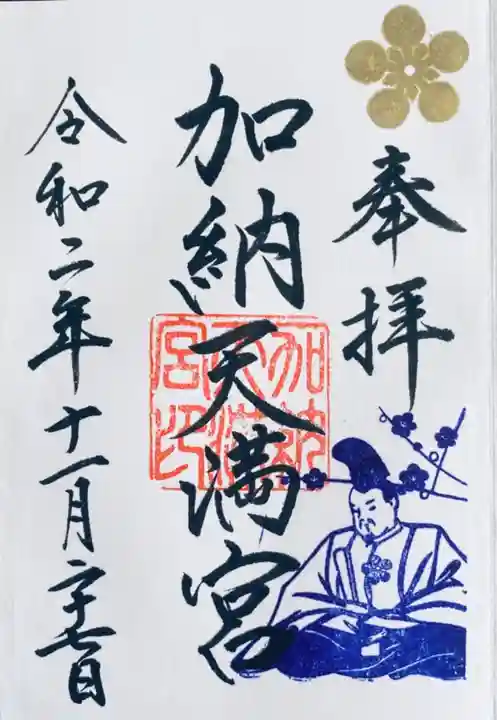 奉拝
加納天満宮
加納天満宮印
令和二年十一月二十七日